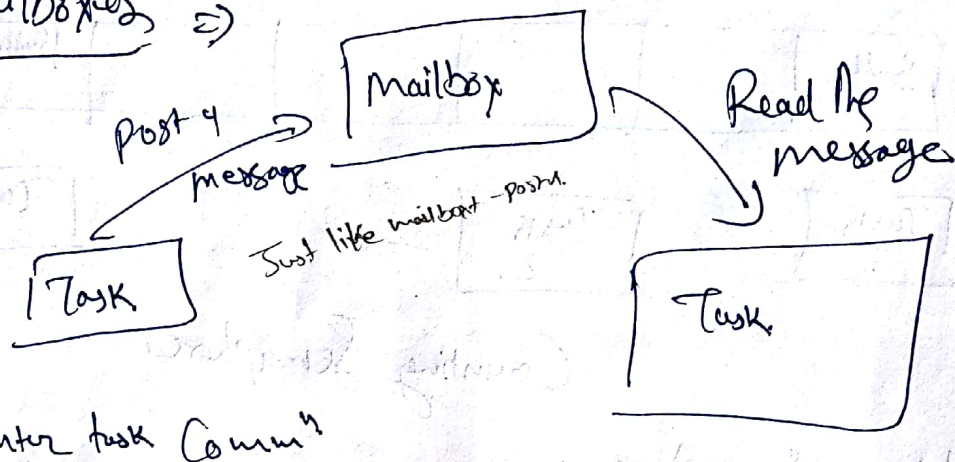 ilboxes =>
Mailbox
Post a
message
Read the
message
Just like mailbox
Task
Task
nter task Commⁿ